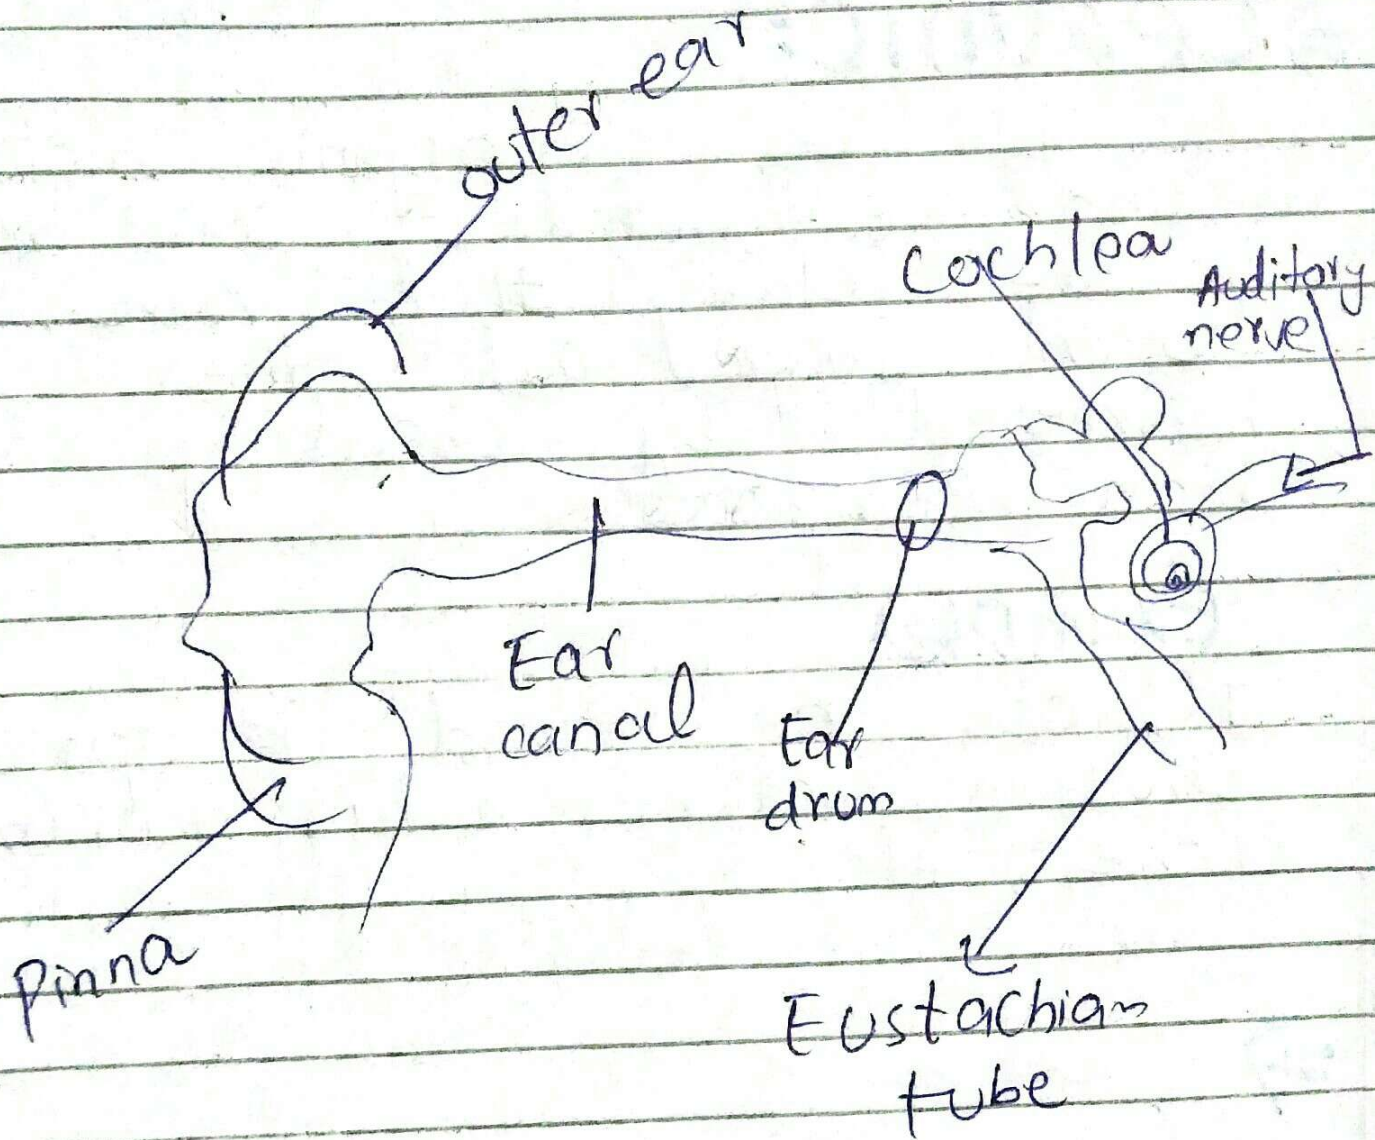 outer ear
Cochlea
Auditory
nerve
Ear
canal
Ear
drum
Pinna
Eustachian
tube